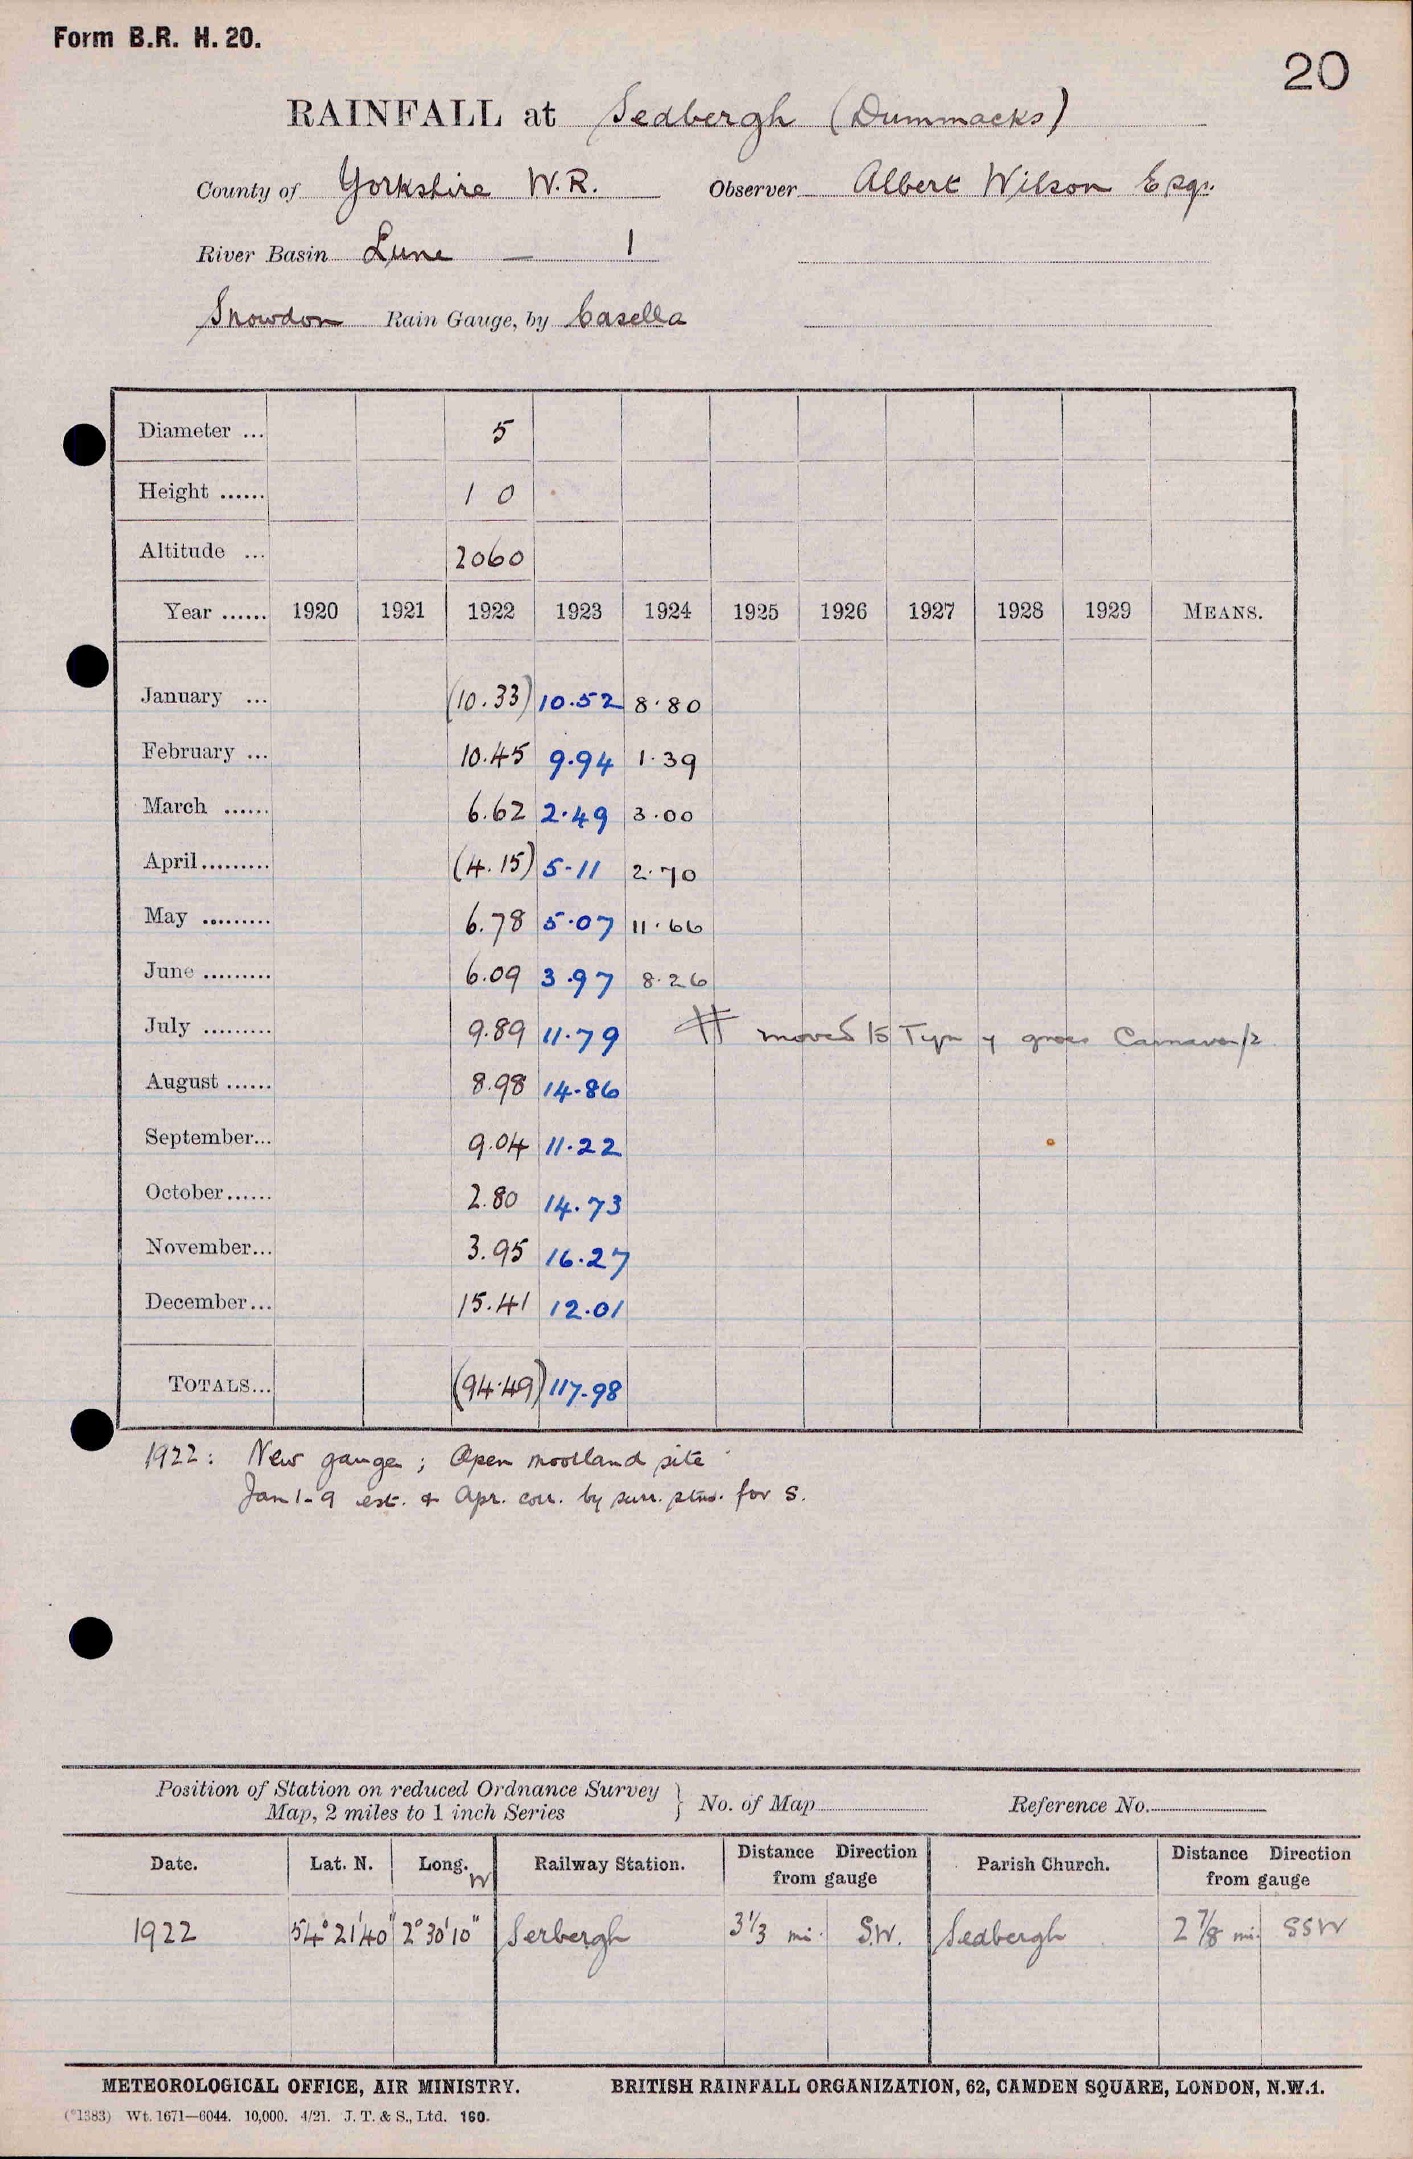 Form B.R. H. 20.
20
RAINFALL at Sedbergh (Dummacks)
County of Yorkshire W.R. Observer Albert Wilson Esqr.
River Basin Lune — 1
Snowdon Rain Gauge, by Casella
Diameter ... 5
Height ...... 1 0
Altitude ... 2060
Year ...... 1920 1921 1922 1923 1924 1925 1926 1927 1928 1929 MEANS.
January ... (10.33) 10.52 8.80
February ... 10.45 9.94 1.39
March ...... 6.62 2.49 3.00
April......... (4.15) 5.11 2.70
May ......... 6.78 5.07 11.66
June ......... 6.09 3.97 8.26
July ......... 9.89 11.79 moved to Tyn y Carnarvon
August ...... 8.98 14.86
September... 9.04 11.22
October...... 2.80 14.73
November... 3.95 16.27
December... 15.41 12.01
TOTALS... (94.49) 117.98
1922: New gauge; Open moorland site
Jan 1-9 est. & Apr. corr. by surr. stns. for S.
Position of Station on reduced Ordnance Survey
Map, 2 miles to 1 inch Series } No. of Map Reference No.
Date. Lat. N. Long. W Railway Station. Distance Direction from gauge Parish Church. Distance Direction from gauge
1922 54° 21' 40" 2° 30' 10" Serbergh 3 1/3 mi. S.W. Sedbergh 2 7/8 mi. SSW
METEOROLOGICAL OFFICE, AIR MINISTRY. BRITISH RAINFALL ORGANIZATION, 62, CAMDEN SQUARE, LONDON, N.W.1.
(*1383) Wt. 1671—6044. 10,000. 4/21. J. T. & S., Ltd. 160.